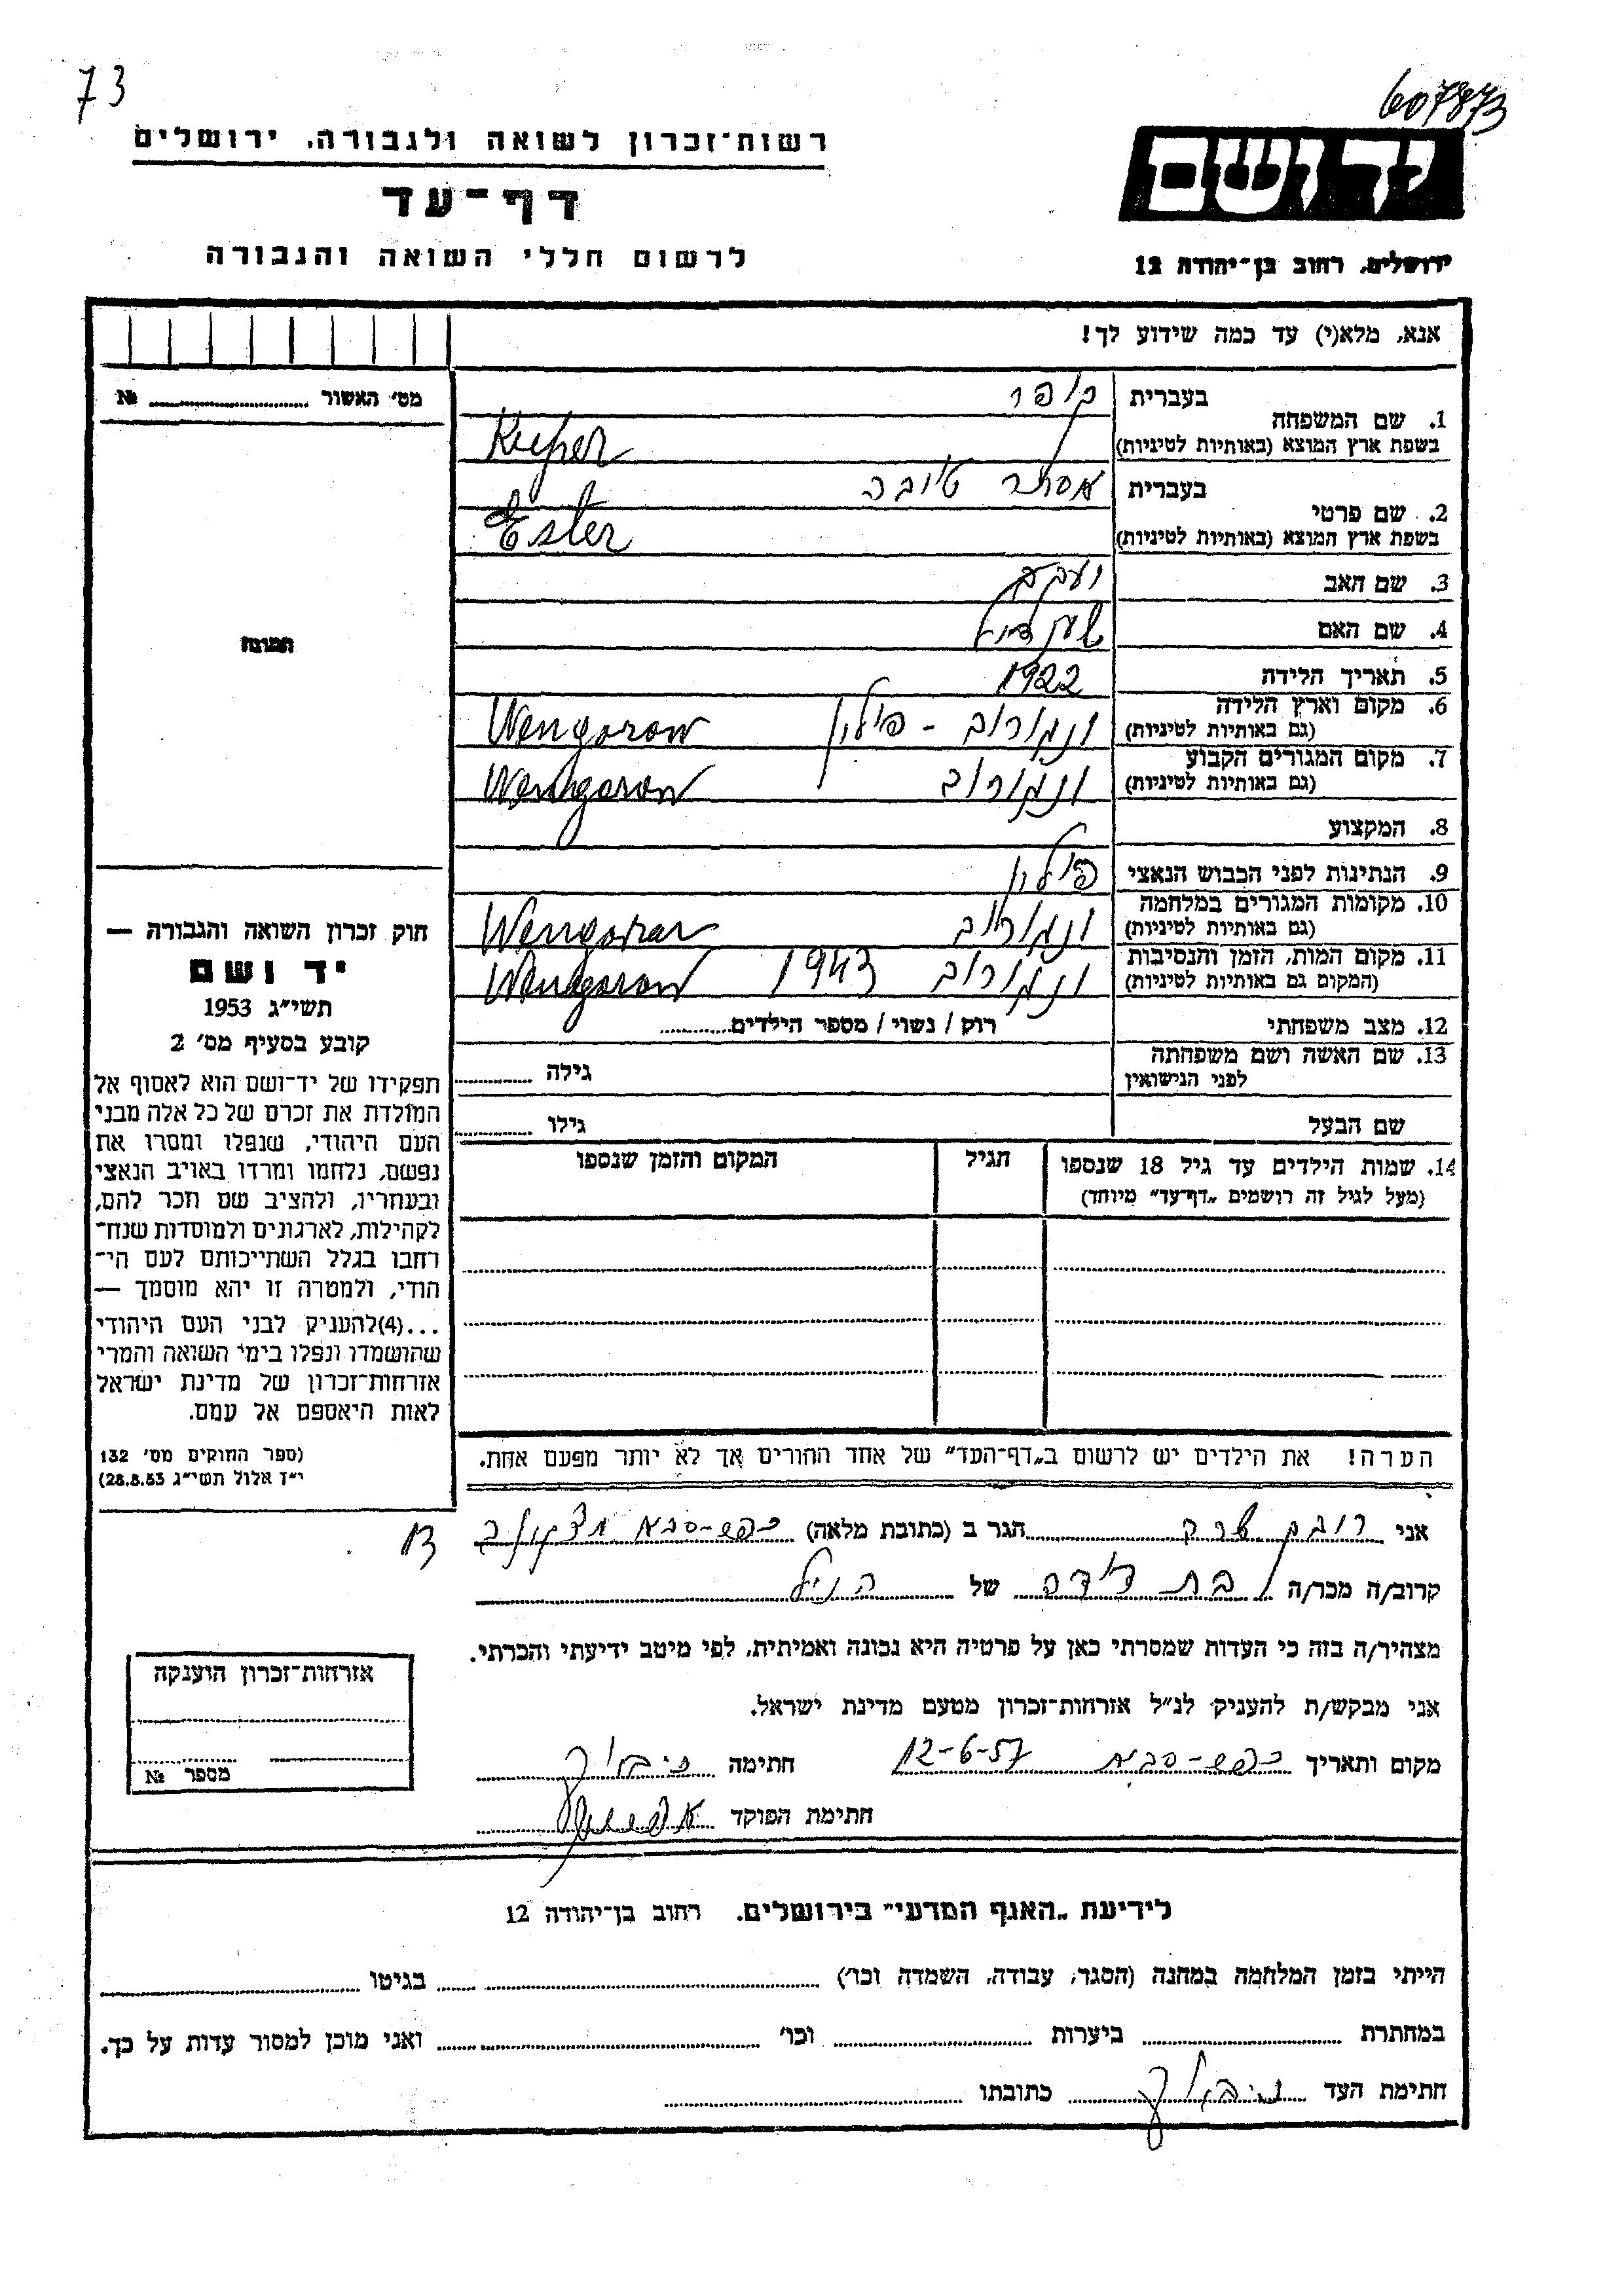 73
607873
רשות־זכרון לשואה ולגבורה, ירושלים
יד ושם
דף־עד
לרשום חללי השואה והגבורה
ירושלים, רחוב בן־יהודה 12
אנא, מלא(י) עד כמה שידוע לך!
מס׳ האשור № 
1. שם המשפחה בעברית קופר
בשפת ארץ המוצא (באותיות לטיניות) Kuper
2. שם פרטי בעברית אסתר טובה
בשפת ארץ המוצא (באותיות לטיניות) Ester
3. שם האב יעקב
4. שם האם
5. תאריך הלידה 1922
6. מקום וארץ הלידה ונגרוב - פולין Wengorow
(גם באותיות לטיניות)
7. מקום המגורים הקבוע ונגרוב Wengorow
(גם באותיות לטיניות)
8. המקצוע
9. הנתינות לפני הכבוש הנאצי פולין
10. מקומות המגורים במלחמה ונגרוב Wengorow
(גם באותיות לטיניות)
11. מקום המות, הזמן והנסיבות ונגרוב 1943 Wengorow
(המקום גם באותיות לטיניות)
12. מצב משפחתי רוק / נשוי / מספר הילדים
13. שם האשה ושם משפחתה גילה
לפני הנישואין
שם הבעל גילו
14. שמות הילדים עד גיל 18 שנספו הגיל המקום והזמן שנספו
(מעל לגיל זה רושמים „דף־עד״ מיוחד)
הערה! את הילדים יש לרשום ב„דף־העד״ של אחד ההורים אך לא יותר מפעם אחת.
תמונה
חוק זכרון השואה והגבורה —
יד ושם
תשי״ג 1953
קובע בסעיף מס׳ 2
תפקידו של יד־ושם הוא לאסוף אל
המולדת את זכרם של כל אלה מבני
העם היהודי, שנפלו ומסרו את
נפשם, נלחמו ומרדו באויב הנאצי
ובעוזריו, ולהציב שם וזכר להם,
לקהילות, לארגונים ולמוסדות שנח־
רבו בגלל השתייכותם לעם הי־
הודי, ולמטרה זו יהא מוסמך —
...(4)להעניק לבני העם היהודי
שהושמדו ונפלו בימי השואה והמרי
אזרחות־זכרון של מדינת ישראל
לאות היאספם אל עמם.
(ספר החוקים מס׳ 132
י״ז אלול תשי״ג 28.8.53)
אני הגר ב (כתובת מלאה) כפר-סבא
קרוב/ה מכר/ה בת דודה של הנ״ל
מצהיר/ה בזה כי העדות שמסרתי כאן על פרטיה היא נכונה ואמיתית, לפי מיטב ידיעתי והכרתי.
אני מבקש/ת להעניק לנ״ל אזרחות־זכרון מטעם מדינת ישראל.
מקום ותאריך כפר-סבא 12-6-57 חתימה
חתימת הפוקד
אזרחות־זכרון הוענקה
מספר №
לידיעת „האגף המדעי״ בירושלים, רחוב בן־יהודה 12
הייתי בזמן המלחמה במחנה (הסגר, עבודה, השמדה וכו׳) בגיטו
במחתרת ביערות וכו׳ ואני מוכן למסור עדות על כך.
חתימת העד כתובתו